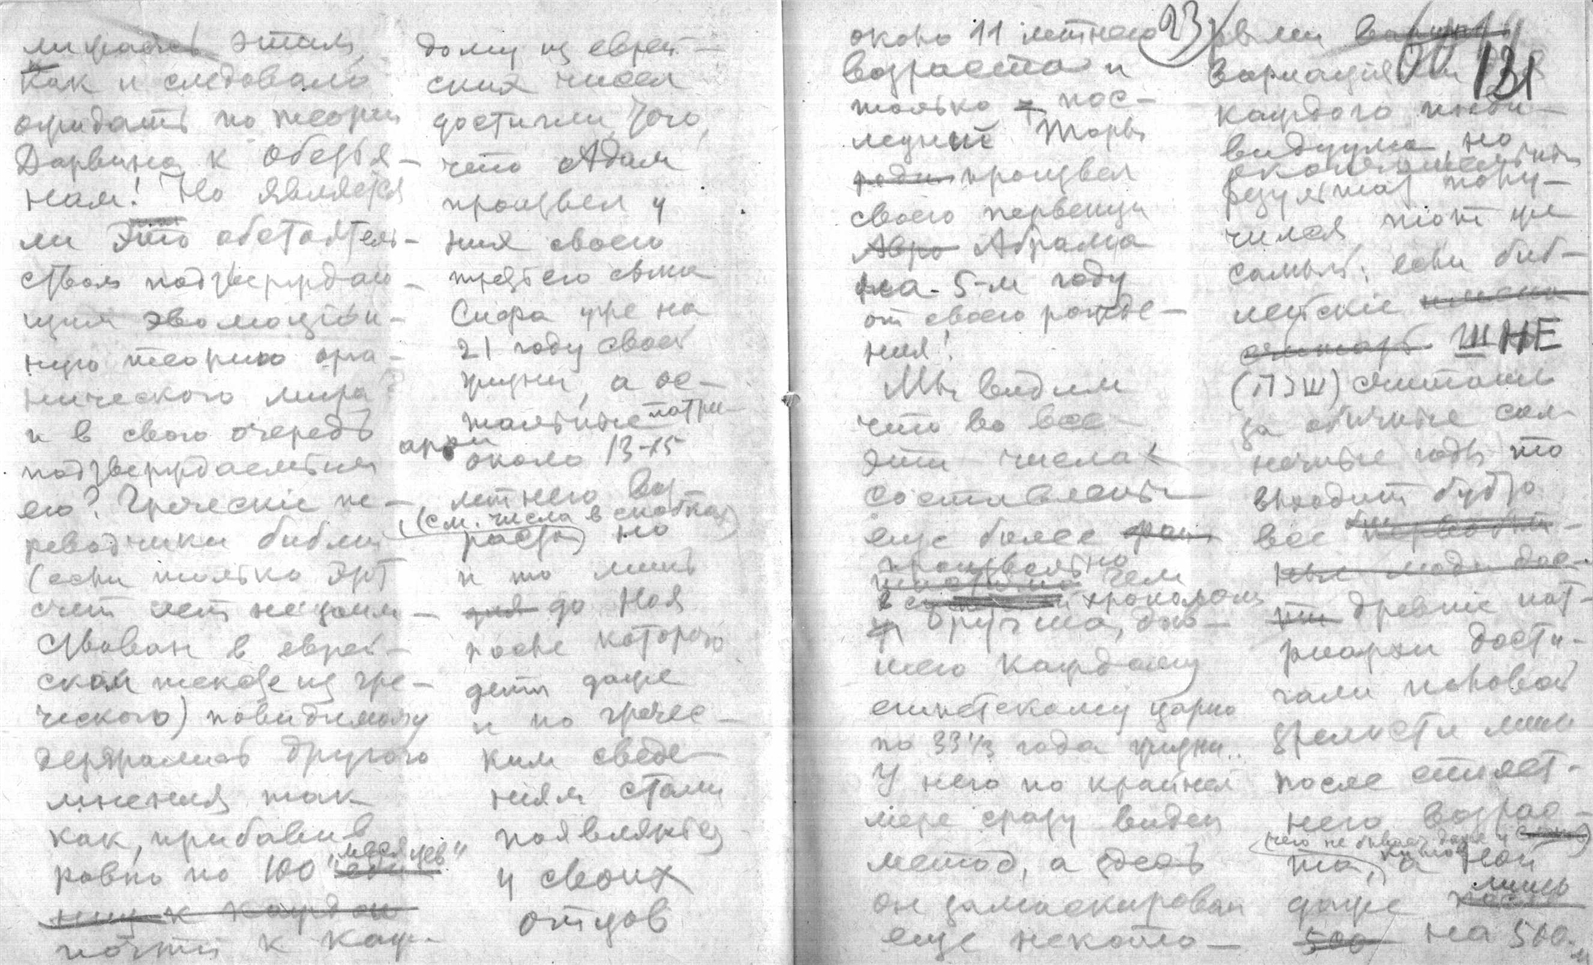 лирались этим,
как и следовало
ожидать по теории
Дарвина к обезья-
нам! Но является
ли это обстоятель-
ством подтверждаю-
щим эволюцион-
ную теорию орга-
нического мира?
и в свою очередь
подтверждаемым
ею? Греческие пе-
реводчики библии
(если только этот
счет не заим-
ствован в еврей-
ском тексте из гре-
ческого) повидимому
держались другого
мнения, так
как, прибавив
ровно по 100 "месяцев"
почти к каж-
дому из еврей-
ских чисел
достигли того,
что Адам
произвел у
них своего
третьего сына
Сифа уже на
21 году своей
жизни, а ос-
тальные патри-
архи около 13-15
летнего воз-
(см. числа в скобках)
раста, но
и то лишь
до Ноя
после которого
дети даже
и по гречес-
ким сведе-
ниям стали
появляться
у своих
отцов
23
около 11 летнего
возраста и
только пос-
ледний Тарь
произвел
своего первенца
Абрама
на 5-м году
от своего рожде-
ния!
Мы видим
что во все
эти числа
составлены
еще более
произвольно чем
в хронологии
Бругша, дав-
шего каждому
египетскому царю
по 33 1/3 года жизни.
У него по крайней
мере сразу виден
метод, а здесь
он замаскирован
еще некото-
131
рыми
вариациями для
каждого инди-
видуума, но
окончательный
результат полу-
чился тот же
самый: если биб-
лейские
ШНЕ
(ПЭШ) считать
за обычные сол-
нечные годы то
выходит будто
все
древние пат-
риархи дости-
гали половой
зрелости лишь
после столет-
него возрас-
та, а Ной
даже лишь
500 на 500-м